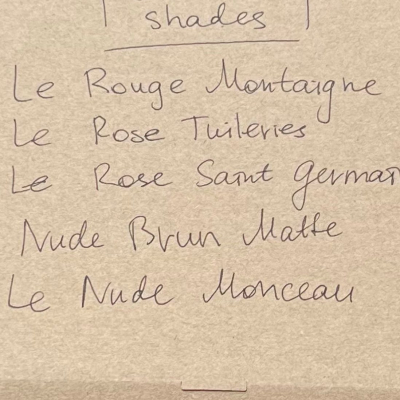 shades
Le Rouge Montaigne
Le Rose Tuileries
Le Rose Saint Germai
Nude Brun Matte
Le Nude Monceau